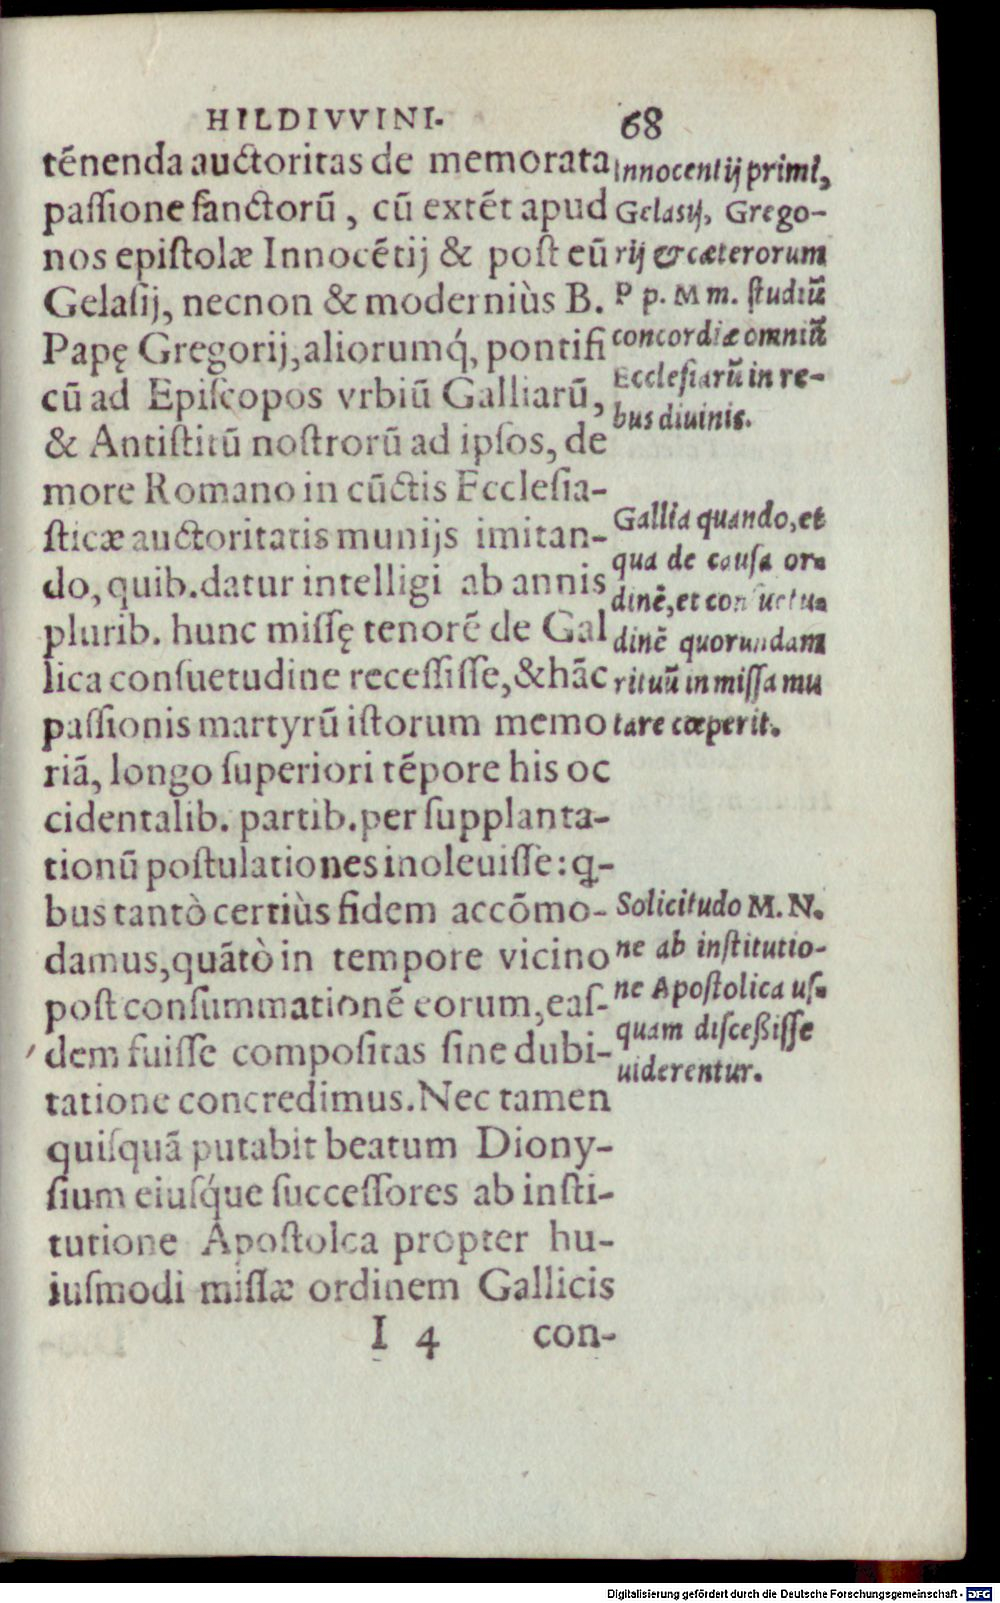 HILDIVVINI. 68
tēnenda auctoritas de memorata
passione sanctorū, cū extēt apud
nos epistolæ Innocētij & post eū
Gelasij, necnon & moderniùs B.
Papę Gregorij, aliorumq́, pontifi
cū ad Episcopos vrbiū Galliarū,
& Antistitū nostrorū ad ipsos, de
more Romano in cūctis Ecclesia-
sticæ auctoritatis munijs imitan-
do, quib. datur intelligi ab annis
plurib. hunc missę tenorē de Gal
lica consuetudine recessisse, & hāc
passionis martyrū istorum memo
riā, longo superiori tēpore his oc
cidentalib. partib. per supplanta-
tionū postulationes inoleuisse: q-
bus tantò certiùs fidem accōmo-
damus, quātò in tempore vicino
post consummationē eorum, eas-
dem fuisse compositas sine dubi-
tatione concredimus. Nec tamen
quisquā putabit beatum Diony-
sium eiusq́ue successores ab insti-
tutione Apostolca propter hu-
iusmodi missæ ordinem Gallicis
I 4 con-
Innocentij primi,
Gelasij, Grego-
rij & cæterorum
P p. M m. studiū
concordiæ omniū
Ecclesiarū in re-
bus diuinis.
Gallia quando, et
qua de causa or-
dinē, et consuetu-
dinē quorundam
rituū in missa mu
tare cœperit.
Solicitudo M. N.
ne ab institutio-
ne Apostolica us-
quam disceßisse
uiderentur.
Digitalisierung gefördert durch die Deutsche Forschungsgemeinschaft - DFG